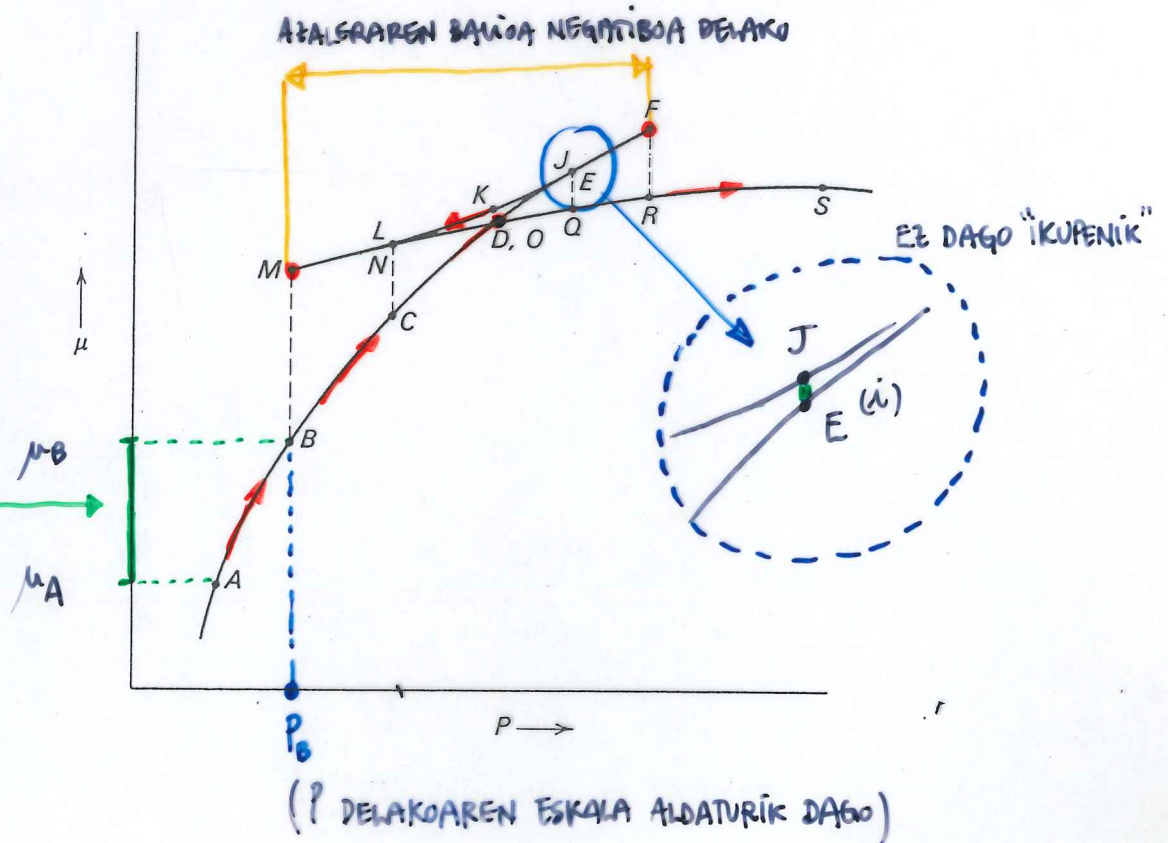 AZALERAREN BALIOA NEGATIBOA DELAKO
F
J
E
K
R
S
L
D, O
Q
EZ DAGO "IKUPENIK"
M
N
C
μ
J
E (i)
μB
B
μA
A
P
PB
(P DELAKOAREN ESKALA ALDATURIK DAGO)